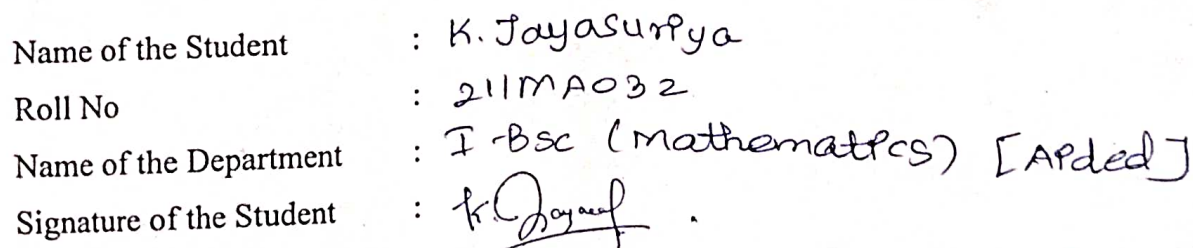 Name of the Student : K. Jayasuriya
Roll No : 211MA032
Name of the Department : I-Bsc (Mathematics) [Aided]
Signature of the Student : K.